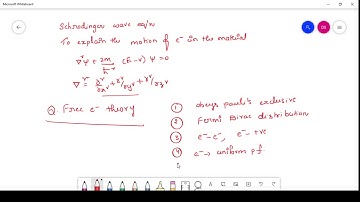 Microsoft Whiteboard
Schrodinger wave eq/n
To explain the motion of e⁻ in the material
∇²ψ + 2m/ħ² (E-V) ψ = 0
∇² = ∂²/∂x² + ∂²/∂y² + ∂²/∂z²
Q. Free e⁻ theory
① obeys pauli's exclusive
② Fermi Dirac distribution
③ e⁻-e⁻, e⁻-+ve
④ e⁻→ uniform